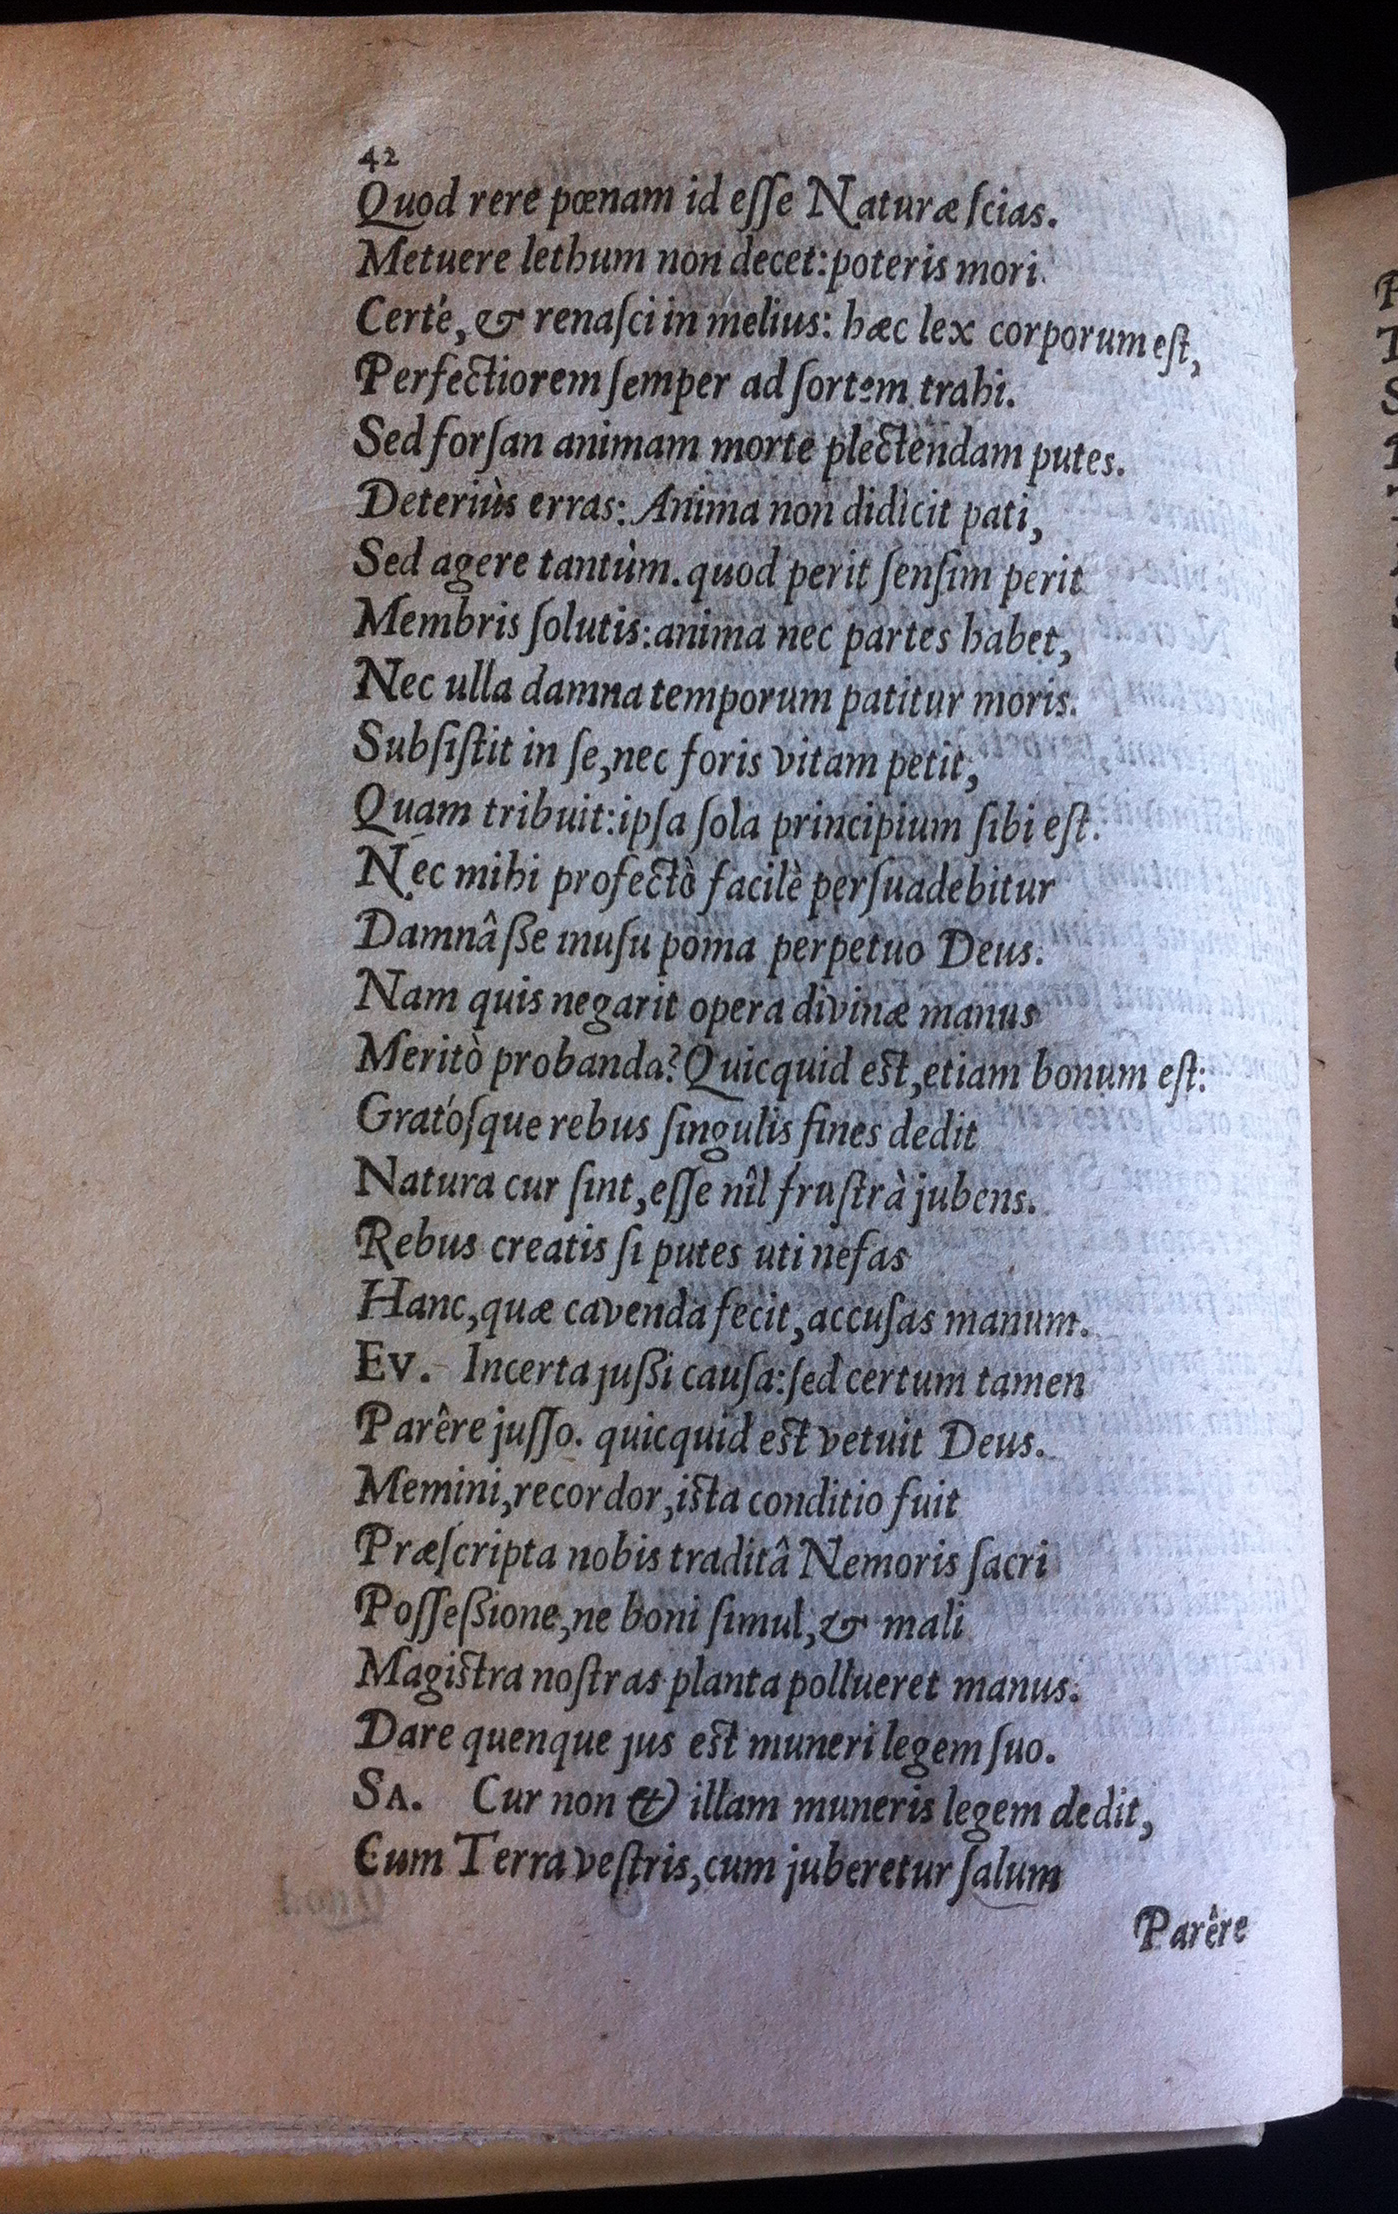 42
Quod rere pœnam id eſſe Naturæ ſcias.
Metuere lethum non decet: poteris mori
Certé, & renaſci in melius: hæc lex corporum eſt,
Perfectiorem ſemper ad ſortem trahi.
Sed forſan animam morte plectendam putes.
Deteriùs erras: Anima non didicit pati,
Sed agere tantùm. quod perit ſenſim perit
Membris ſolutis: anima nec partes habet,
Nec ulla damna temporum patitur moris.
Subſiſtit in ſe, nec foris vitam petit,
Quam tribuit: ipſa ſola principium ſibi eſt.
Nec mihi profectò facilè perſuadebitur
Damnâſſe inuſu poma perpetuo Deus.
Nam quis negarit opera divinæ manus
Meritò probanda? Quicquid eſt, etiam bonum eſt:
Gratóſque rebus ſingulis fines dedit
Natura cur ſint, eſſe nîl fruſtrà jubens.
Rebus creatis ſi putes uti nefas
Hanc, quæ cavenda fecit, accuſas manum.
Ev. Incerta juſſi cauſa: ſed certum tamen
Parêre juſſo. quicquid eſt vetuit Deus.
Memini, recordor, iſta conditio fuit
Præſcripta nobis traditâ Nemoris ſacri
Poſſeſſione, ne boni ſimul, & mali
Magiſtra noſtras planta pollueret manus.
Dare quenque jus eſt muneri legem ſuo.
Sa. Cur non & illam muneris legem dedit,
Cum Terra veſtris, cum juberetur ſalum
Parêre